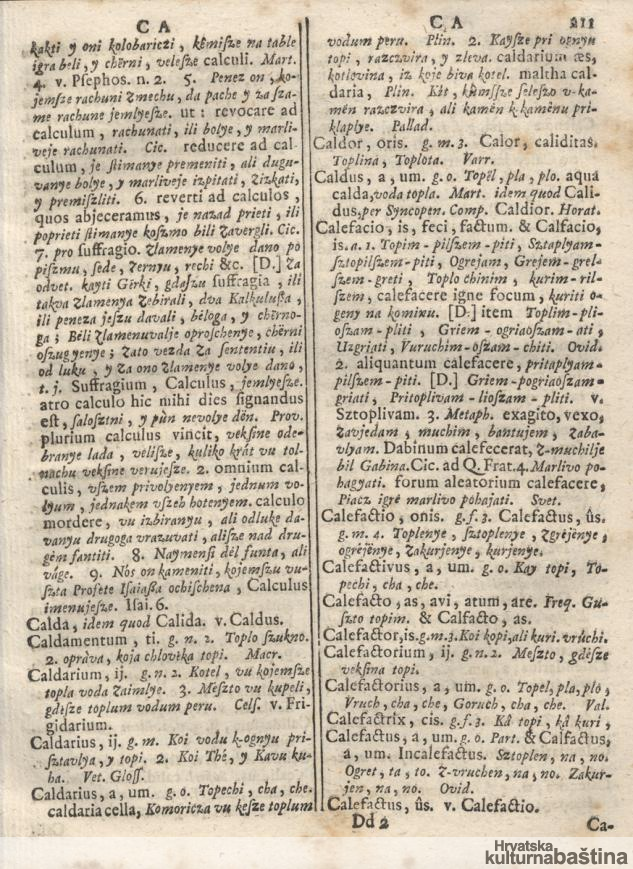 C A
kakti y oni kolobariczi, kêmisze na table
igra beli, y chërni, velesze calculi. Mart.
4. v. Psephos. n. 2. 5. Penez on, ko-
jemsze rachuni zmechu, da pache y za sza-
me rachune jemlyesze. ut: revocare ad
calculum, rachunati, ili bolye, y marli-
veje rachunati. Cic. reducere ad cal-
culum, je stimanye premeniti, ali dugu-
vanye bolye, y marliveje izpitati, zizkati,
y premiszliti. 6. reverti ad calculos,
quos abjeceramus, je nazad prieti, ili
poprieti stimanye koszmo bili zavergli. Cic.
7. pro suffragio. Zlamenye volye dano po
piszmu, sede, zernyu, rechi &c. [D.] Za
odvet. kayti Girki, gdaszu suffragia, ili
takva zlamenya zebirali, dva Kalkulussa,
ili peneza jeszu davali, bêloga, y chërno-
ga; Bêli zlamenuvalje oproschenye, chërni
oszugyenye; zato vezda za sententiu, ili
od luku, y za ono zlamenye volye dano,
t. j. Suffragium, Calculus, jemlyesze.
atro calculo hic mihi dies signandus
est, salosztni, y pùn nevolye dên. Prov.
plurium calculus vincit, veksine ode-
branye lada, velisze, kuliko krát vu tol-
nachu veksine verujesze. 2. omnium cal-
culis, vszem privolyenyem, jednum vo-
lyum, jednakem vszeh hotenyem. calculo
mordere, vu izbiranyu, ali odluke da-
vanyu drugoga vrazuvati, alisze nad dru-
gêm fantiti. 8. Naymensi dêl funta, ali
vâge. 9. Nòs on kameniti, kojemszu vu-
szta Profete Isaiassa ochischena, Calculus
imenujesze. Isai. 6.
Calda, idem quod Calida. v. Caldus.
Caldamentum, ti. g. n. 2. Toplo szukno.
2. opráva, koja chlovêka topi. Macr.
Caldarium, ij. g. n. 2. Kotel, vu kojemsze
topla voda zaimlye. 3. Meszto vu kupeli,
gdêsze toplum vodum peru. Cels. v. Fri-
gidarium.
Caldarius, ij. g. m. Koi vodu k-ognyu pri-
sztavlya, y topi. 2. Koi Thê, y Kavu ku-
ha. Vet. Gloss.
Caldarius, a, um. g. o. Topechi, cha, che.
caldaria cella, Komoricza vu kesze toplum
C A
211
vodum peru. Plin. 2. Kaysze pri ognyu
topi, razczvira, y zleva. caldarium æs,
kotlovina, iz koje biva kotel. maltha cal-
daria, Plin. Kêt, kêmszse seleszo v-ka-
mën razczvira, ali kamën k-kamënu pri-
klaplye. Pallad.
Caldor, oris. g. m. 3. Calor, caliditas.
Toplina, Toplota. Varr.
Caldus, a, um. g. o. Topël, pla, plo. aqua
calda, voda topla. Mart. idem quod Cali-
dus, per Syncopen. Comp. Caldior. Horat.
Calefacio, is, feci, factum. & Calfacio,
is. a. 1. Topim-pilszem-piti, Sztaplyam-
sztopilszem-piti, Ogrejam, Grejem-grel-
szem-greti, Toplo chinim, kurim-ril-
szem, calefacere igne focum, kuriti o-
geny na komixu. [D.] item Toplim-pli-
oszam-pliti, Griem-ogriaoszam-ati,
Uzgriati, Vuruchim-oszam-chiti. Ovid.
2. aliquantum calefacere, pritaplyam-
pilszem-piti. [D.] Griem-pogriaoszam-
griati, Pritoplivam-lioszam-pliti. v.
Sztoplivam. 3. Metaph. exagito, vexo,
Zavjedam, muchim, bantujem, Zaba-
vlyam. Dabinum calefecerat, z-muchilje
bil Gabina. Cic. ad Q. Frat. 4. Marlivo po-
hagyati. forum aleatorium calefacere,
Piacz igrè marlivo pohajati. Svet.
Calefactio, onis. g. f. 3. Calefactus, ûs.
g. m. 4. Toplenye, sztoplenye, zgrêjênye,
ogrêjënye, zakurjenye, kurjenye.
Calefactivus, a, um. g. o. Kay topi, To-
pechi, cha, che.
Calefacto, as, avi, atum, are. Freq. Gu-
szto topim. & Calfacto, as.
Calefactor, is. g. m. 3. Koi kopi, ali kuri. vrùchi.
Calefactorium, ij. g. n. 2. Meszto, gdësze
veksina topi.
Calefactorius, a, um. g. o. Topel, pla, plo,
Vruch, cha, che, Goruch, cha, che. Val.
Calefactrix, cis. g. f. 3. Kâ topi, kâ kuri,
Calefactus, a, um. g. o. Part. & Calfactus,
a, um. Incalefactus. Sztoplen, na, no.
Ogret, ta, to. Z-vruchen, na, no. Zakur-
jen, na, no. Ovid.
Calefactus, ûs. v. Calefactio.
Dd 2
Ca-
Hrvatska
kulturnabaština